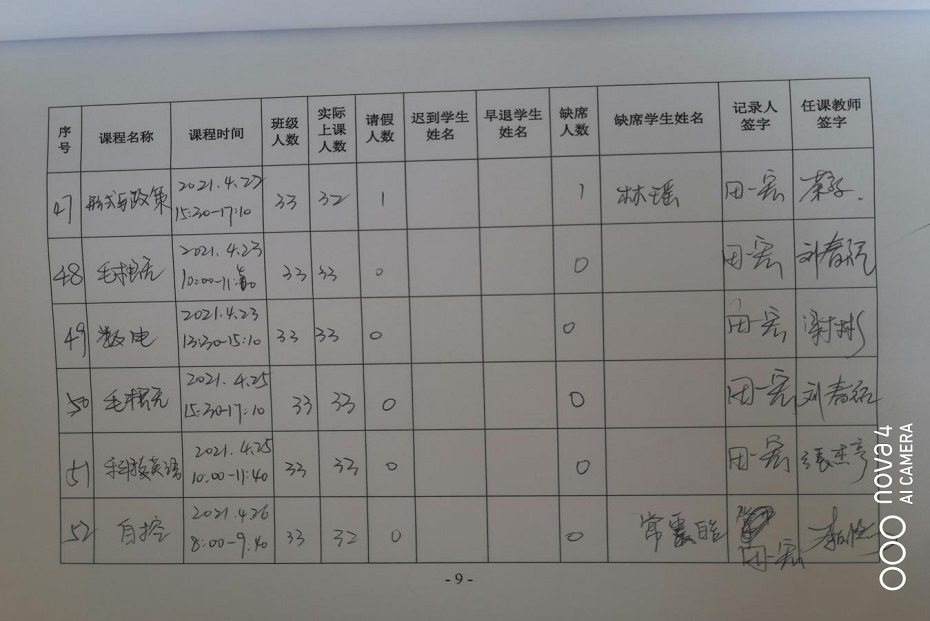 序号 课程名称 课程时间 班级人数 实际上课人数 请假人数 迟到学生姓名 早退学生姓名 缺席人数 缺席学生姓名 记录人签字 任课教师签字
47 形式与政策 2021.4.22 15:30-17:10 33 32 1 1 林瑶 田一宏
48 毛概 2021.4.23 10:00-11:40 33 33 0 0 田一宏 刘春
49 数电 2021.4.23 13:30-15:10 33 33 0 0 田一宏
50 毛概 2021.4.25 15:30-17:10 33 33 0 0 田一宏 刘春
51 科技英语 2021.4.25 10:00-11:40 33 33 0 0 田一宏
52 自控 2021.4.26 8:00-9:40 33 32 0 0 常 田一宏
- 9 -
nova 4
AI CAMERA